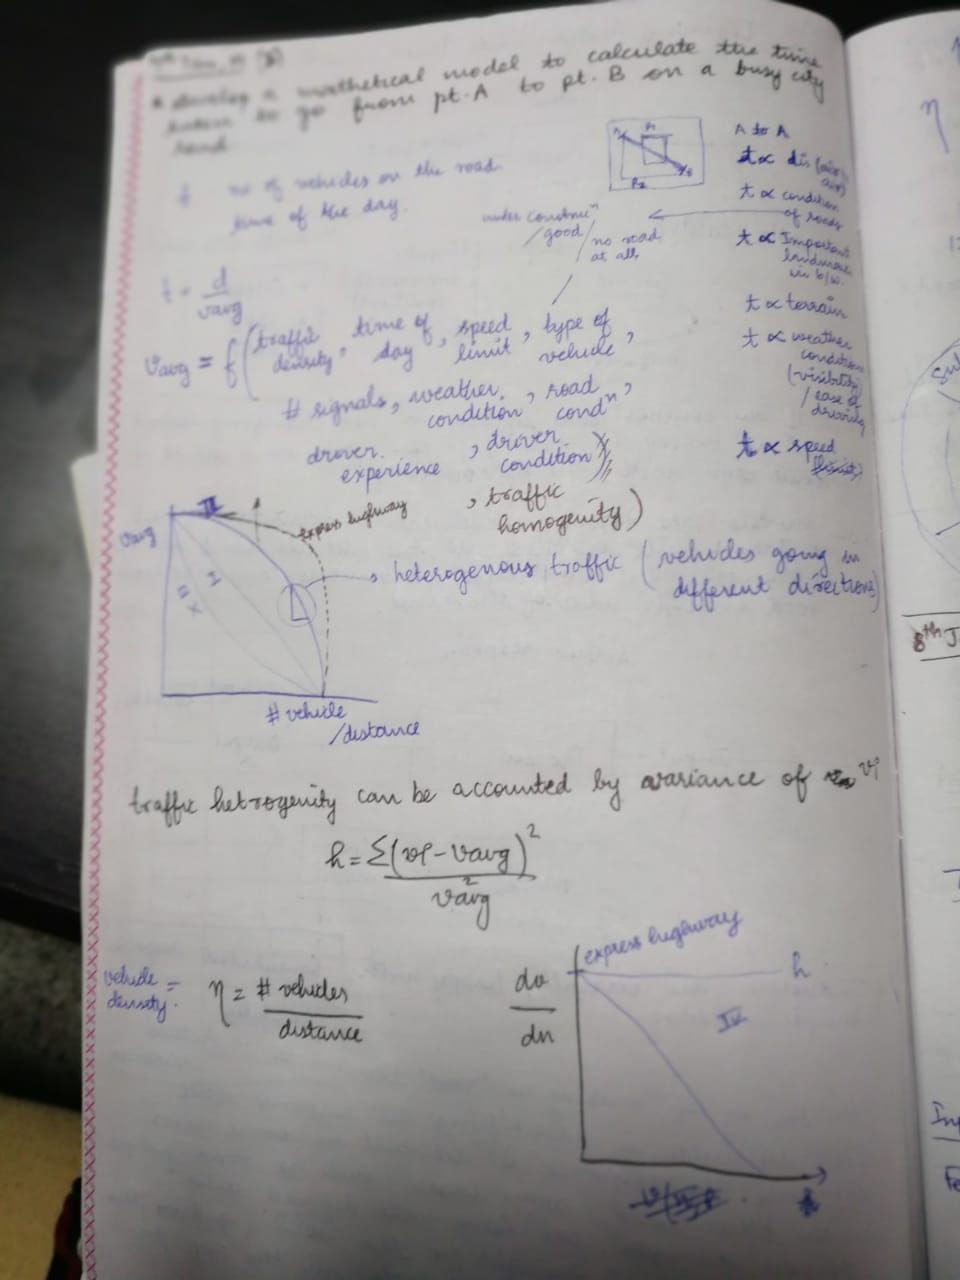 a mathetical model to calculate the time
to go from pt. A to pt. B on a busy city
road
no of vehicles on the road
time of the day.
A to A
t ∝ dis
t ∝ condition
of roads
t ∝ Important
landmark
in b/w.
t ∝ terrain
t ∝ weather
condition
(visibility
/ ease of
driving
t ∝ speed
P2
under construcⁿ
/good/
no road
at all
t = d
vavg
vavg = f ( traffic density, time of day, speed limit, type of vehicle,
# signals, weather condition, road condⁿ,
driver experience, driver condition)
, traffic homogenity)
vavg
II
express highway
heterogenous traffic ( vehicles going in
different directions)
# vehicle
/distance
traffic hetrogenity can be accounted by variance of vi
h = Σ(vi - vavg)²
v²avg
vehicle density = η = # vehicles
distance
dv
dn
express highway
h
8th J
η